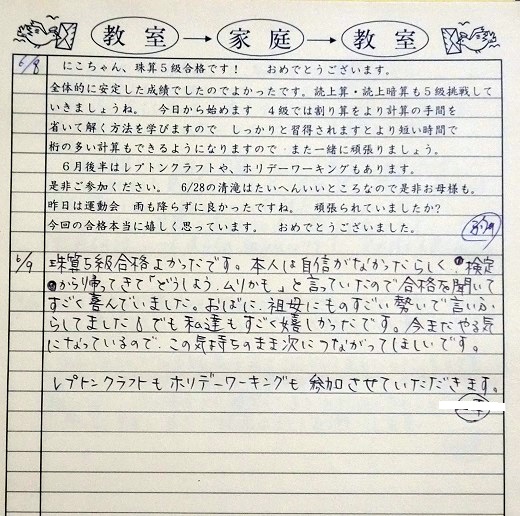 教室 → 家庭 → 教室
6/8 にこちゃん、珠算５級合格です！ おめでとうございます。
全体的に安定した成績でしたのでよかったです。読上算・読上暗算も５級挑戦して
いきましょうね。 今日から始めます ４級では割り算をより計算の手間を
省いて解く方法を学びますので しっかりと習得されますとより短い時間で
桁の多い計算もできるようになりますので また一緒に頑張りましょう。
６月後半はレプトンクラフトや、ホリデーワーキングもあります。
是非ご参加ください。 6/28の清滝はたいへんいいところなので是非お母様も。
昨日は運動会 雨も降らずに良かったですね。 頑張られていましたか？
今回の合格本当に嬉しく思っています。 おめでとうございました。
6/9 珠算5級合格よかったです。本人は自信がなかったらしく、検定
から帰ってきて「どうしよう、ムリかも」と言っていたので合格を聞いて
すごく喜んでいました。おばに、祖母にものすごい勢いで言いふ
らしてました。でも私達もすごく嬉しかったです。今またやる気
になっているので、この気持ちのまま次につながってほしいです。
レプトンクラフトもホリデーワーキングも参加させていただきます。